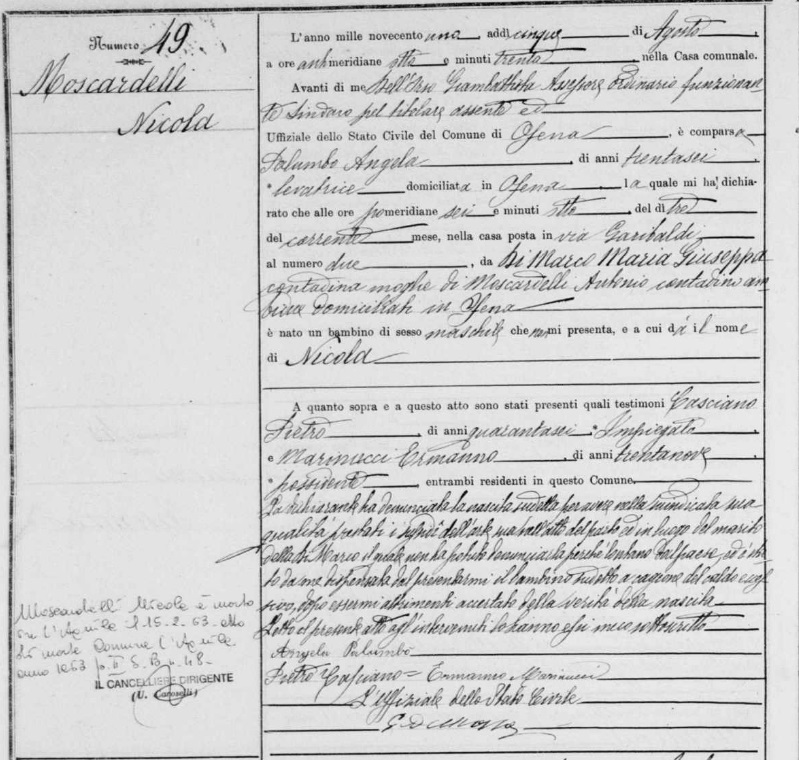 Numero 49
Moscardelli
Nicola
L'anno mille novecento uno, addì cinque di Agosto
a ore antimeridiane otto e minuti trenta, nella Casa comunale.
Avanti di me Dell'Orso Giambattista Assessore ordinario funzionan-
te Sindaco pel titolare assente ed
Uffiziale dello Stato Civile del Comune di Ofena, è comparsa
Palumbo Angela, di anni trentasei
levatrice domiciliata in Ofena, la quale mi ha dichia-
rato che alle ore pomeridiane sei e minuti otto, del dì tre
del corrente mese, nella casa posta in via Garibaldi
al numero due, da Di Marco Maria Giuseppa
contadina moglie di Moscardelli Antonio contadino am-
bidue domiciliati in Ofena
è nato un bambino di sesso maschile che non mi presenta, e a cui dà il nome
di Nicola
A quanto sopra e a questo atto sono stati presenti quali testimoni Casciano
Pietro, di anni quarantasei Impiegato
e Marinucci Ermanno, di anni trentanove
possidente, entrambi residenti in questo Comune.
La dichiarante ha denunciata la nascita suddetta per avere nella suindicata sua
qualità prestati i dell'arte sua all'atto del parto ed in luogo del marito
della Di Marco il quale non ha potuto denunciarla perché lontano dal paese, ed è sta-
to da me dispensata dal presentarmi il bambino suddetto a cagione del caldo ecces-
sivo, dopo essermi altrimenti accertato della verità della nascita
Letto il presente atto agl'intervenuti lo hanno essi meco sottoscritto
Angela Palumbo
Pietro Casciano = Ermanno Marinucci
L'Uffiziale dello Stato Civile
Moscardelli Nicola è morto
in L'Aquila il 15-2-63 atto
di morte Comune L'Aquila
anno 1963 p. II S. B n. 48
IL CANCELLIERE DIRIGENTE
(U. Caroselli)